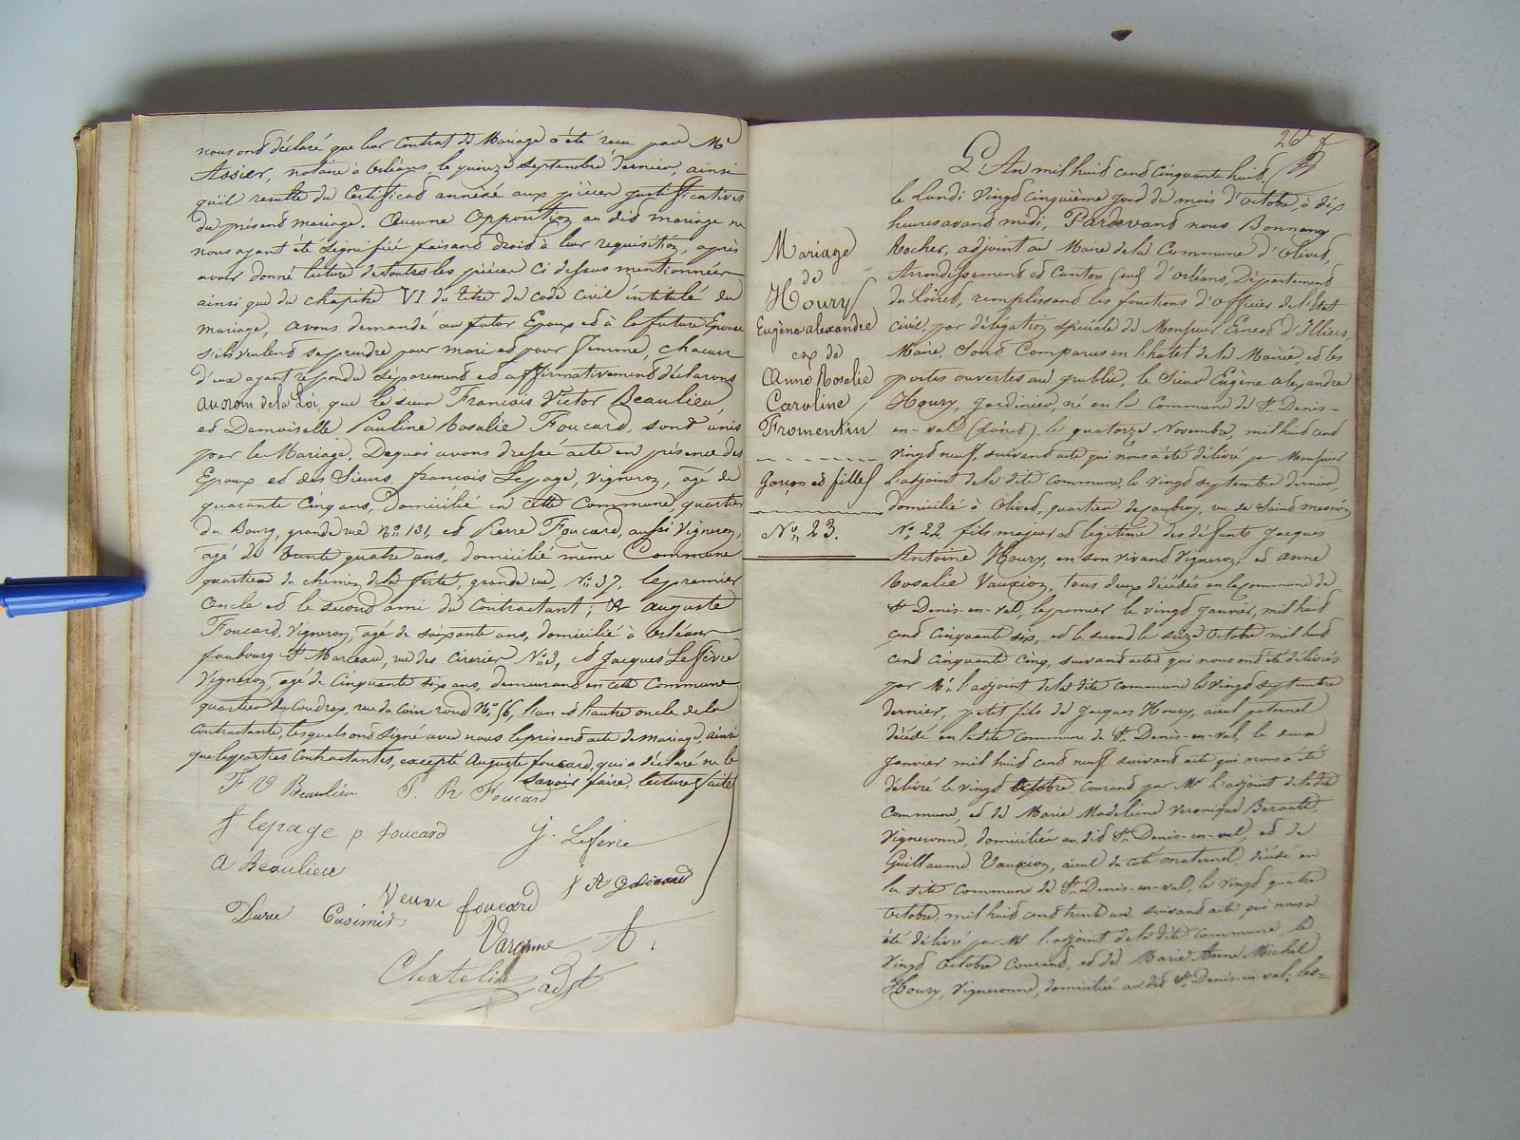 nous ont déclaré que leur contrat de Mariage a été recu par Me
Assier, notaire à Orléans, le quinze septembre dernier, ainsi
qu'il resulte du Certificat annexé aux pièces justificatives
du présent mariage. Aucune Opposition au dit mariage ne
nous ayant été signifiée faisant droit à leur requisition, après
avoir donné lecture de toutes les pièces ci dessus mentionnées
ainsi que du chapitre VI du titre du code civil intitulé du
mariage, avons demandé au futur Epoux et à la future Epouse
s'ils veulent se prendre pour mari et pour femme, chacun
d'eux ayant répondu séparement et affirmativement déclarons
au nom de la Loi, que le sieur François Victor Beaulieu
et Demoiselle Pauline Rosalie Foucard, sont unis
par le Mariage, Dequoi avons dressé acte en présence des
Epoux et des Sieurs, françois Lepage, vigneron, âgé de
quarante Cinq ans, Domicilié en cette Commune, quartier
du Bourg, grande rue No 131, et Pierre Foucard, aussi Vigneron,
âgé de trente quatre ans, domicilié même Commune
quartier du chemin de la ferté, grande rue, No 37, le premier
Oncle et le second ami du Contractant; & Auguste
Foucard, Vigneron, âgé de soixante ans, domicilié à Orléans
faubourg St Marceau, rue des Ciriers No 2, et Jacques Lefèvre
Vigneron, âgé de Cinquante six ans, demeurant en cette Commune
quartier du Coudray, rue du Coin rond No 56, l'un et l'autre oncle de la
Contractante, lesquels ont signé avec nous le présent acte de mariage, ainsi
que les parties Contractantes, excepté Auguste foucard, qui a déclaré ne le
savoir faire, lecture faite
F V Beaulieu P. R Foucard
f lepage p foucard J. Lefèvre
A Beaulieu
Veuve foucard
Casimir
Varenne
Chatelin adjt
26
L'An mil huit cent cinquante huit,
le Lundi Vingt cinquième jour du mois d'octobre, à dix
heures avant midi, Pardevant nous Bonnemy
Rocher, adjoint au Maire de la Commune d'Olivet,
Arrondissement et Canton sud d'Orléans, Département
du Loiret, remplissant les fonctions d'officier de l'Etat
civil, par délégation spéciale de Monsieur Ernest d'Illiers,
Maire, Sont Comparus en l'hotel de la Mairie, et les
portes ouvertes au public, le Sieur Eugène alexandre
Houry, Jardinier, né en la Commune de St Denis-
en-val (Loiret), le quatorze Novembre, mil huit cent
vingt neuf, suivant acte qui nous a été délivré par Monsieur
l'adjoint de la dite commune, le vingt septembre dernier,
domicilié à Olivet, quartier de rue de Saint mesmin
No 22 fils majeur et légitime des défunts Jacques
Antoine Houry, en son vivant Vigneron, et anne
Rosalie Vauxion, tous deux décédés en la commune de
St Denis-en-val, le premier le vingt Janvier, mil huit
cent cinquante six, et la seconde le seize Octobre mil huit
cent cinquante cinq, suivant actes qui nous ont été délivrés
par Mr l'adjoint de la dite commune le vingt septembre
dernier, petit fils de Jacques Houry, aieul paternel
décédé en ladite commune de St Denis-en-val, le
Janvier mil huit cent neuf suivant acte qui nous a été
délivré le vingt Octobre courant par Mr l'adjoint de la dite
Commune, et de Marie Madeleine Veronique
Vigneronne, domiciliée au dit St Denis-en-val, et de
Guillaume Vauxion, aieul du coté maternel, décédé en
la dite Commune de St Denis-en-val, le vingt quatre
Octobre, mil huit cent trente un suivant acte qui nous a
été délivré par Mr l'adjoint de la dite commune, le
vingt Octobre Courant, et de Marie Anne Michel
Houry, Vigneronne, domiciliée au dit St Denis-en-val; les-
Mariage
de
Houry
Eugène alexandre
et de
Anne Rosalie
Caroline
Fromentin
Garçon et fille
No 23.